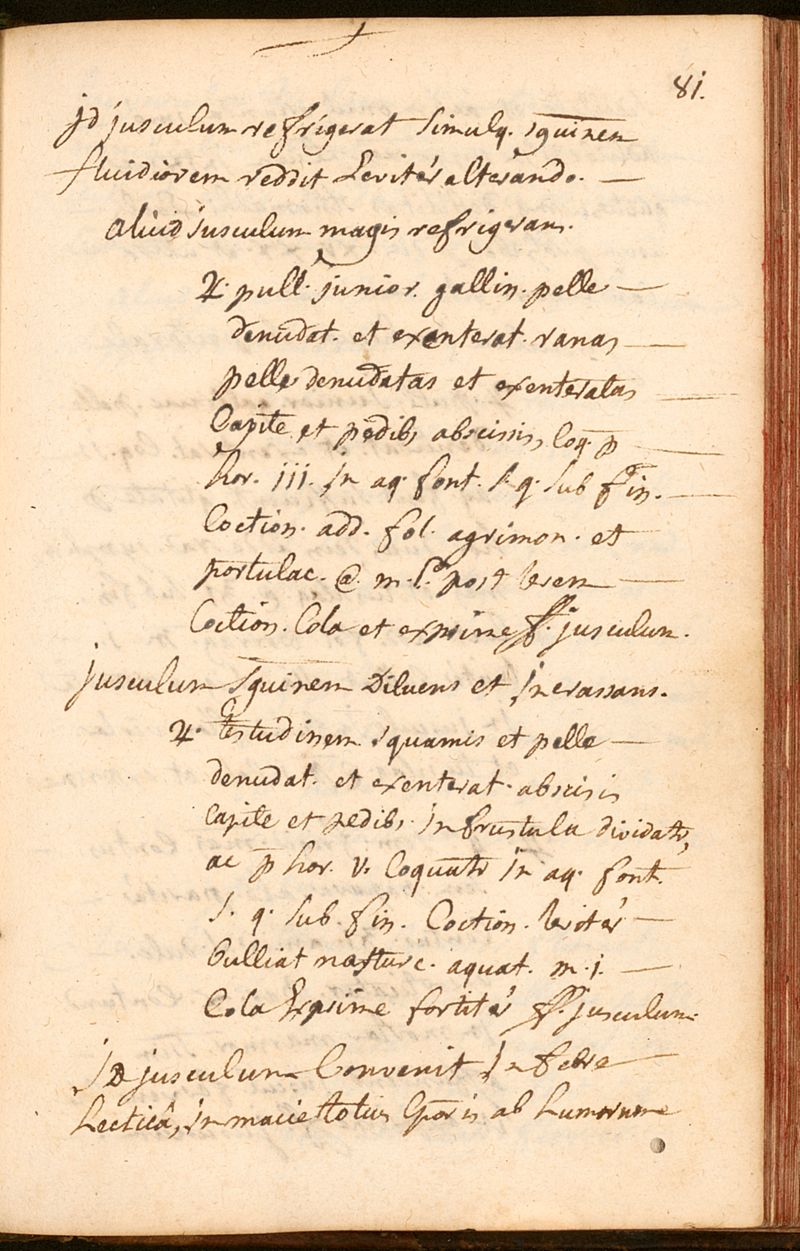 81.
jd jusculum refrigerat simulq. sguinem
fluidiorem reddit Levitér alterando. —
aliud jusculum magis refrigerans.
♃. pull. junior. gallin. pelle —
denudat. et exenterat. ranas —
pelle denudatas et exenteratas —
Capite et pedib, abscissis, Coq. p —
hor. iii. in aq. font. s. q. sub fin. —
Coction. add. fol. agrimon. et
portulac. @. m. post levem —
Coction. Cola et exprime ff. jusculum.
jusculum sguinem Diluens et Incrassans.
♃. testudinem squamis et pelle —
denudat. et exenterat. abscisis
capite et pedibs. in frustula dividatr,
ac p hor. v. Coquatr in aq. font.
s. q. sub. fin. Coction. levitér —
bulliat nasturc. aquat. m. j. —
Cola Exprime fortitér ff. jusculum.
jd jusculum Convenit in febre —
hecticâ, in macie totius Cporis ab humorum